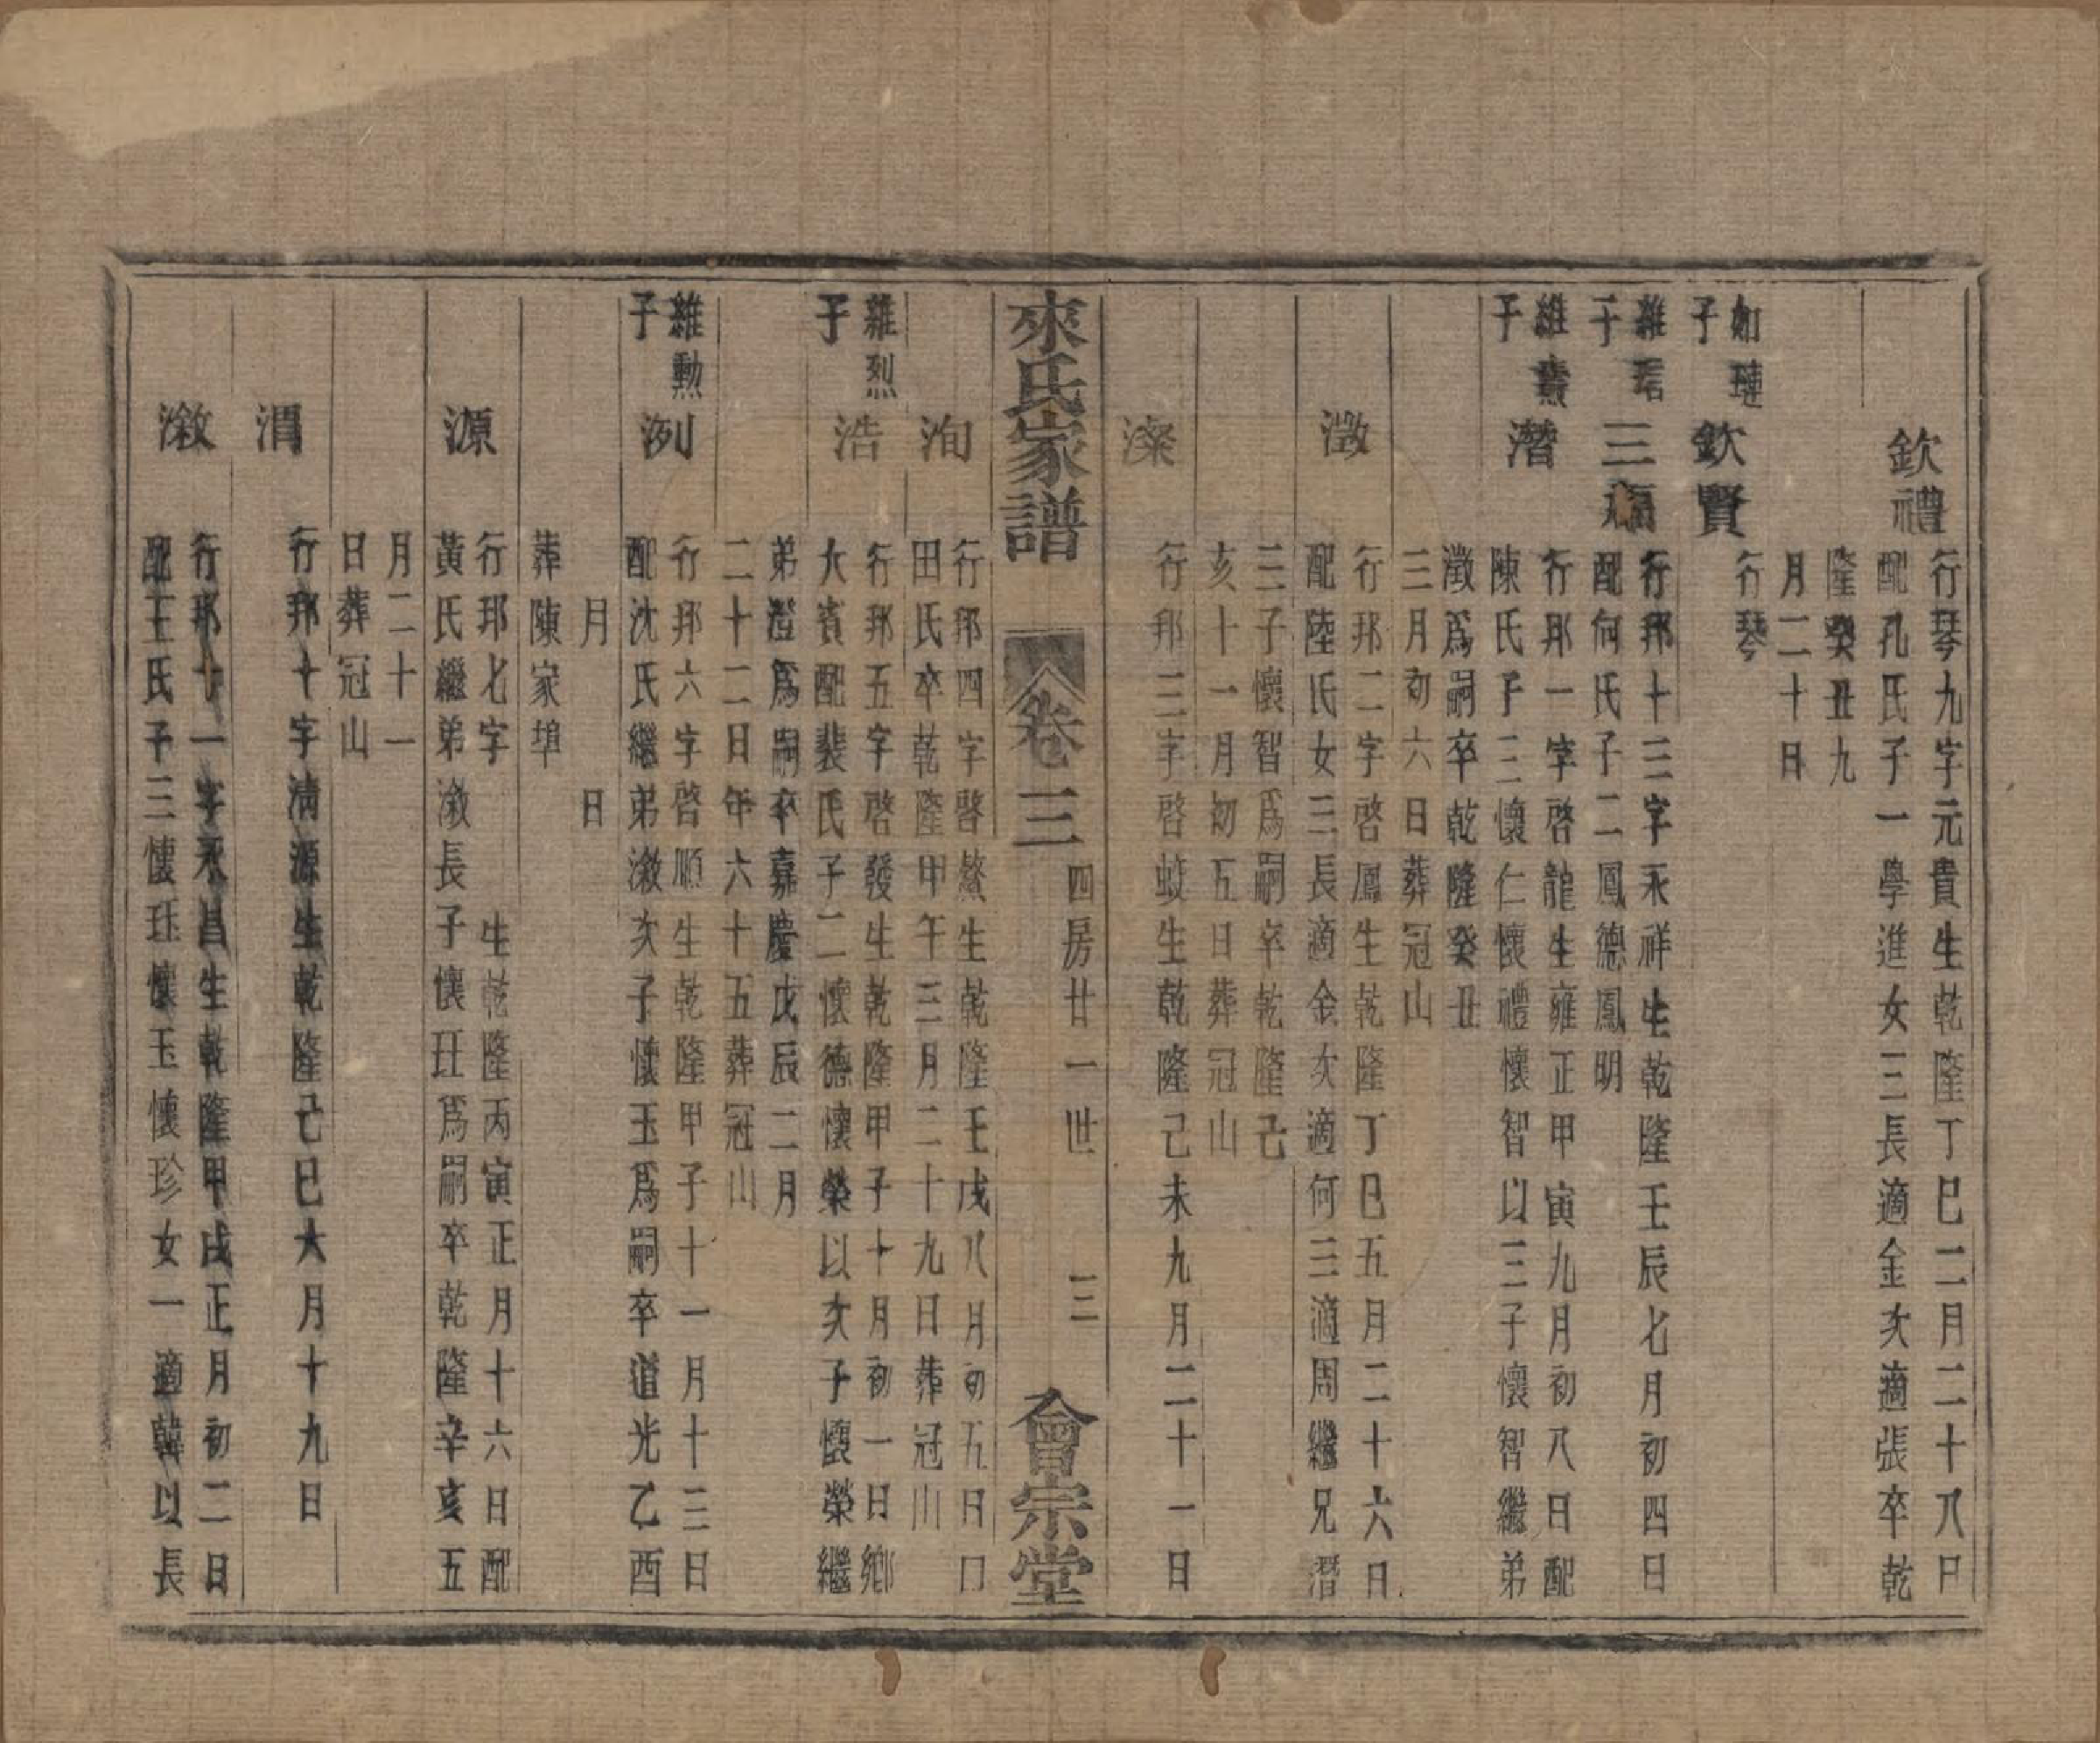 欽禮
行琴九字元貴生乾隆丁巳二月二十八日
配孔氏子一學進女三長適金次適張卒乾
隆癸丑九
月二十日
如璉
子
欽賢
行琴
維珺
子
三福
行邦十三字永祥生乾隆壬辰七月初四日
配何氏子二鳳德鳳明
維燾
子
潛
行邦一字啓龍生雍正甲寅九月初八日配
陳氏子三懷仁懷禮懷智以三子懷智繼弟
澂爲嗣卒乾隆癸丑
三月初六日葬冠山
澂
行邦二字啓鳳生乾隆丁巳五月二十六日
配陸氏女三長適金次適何三適周繼兄潛
三子懷智爲嗣卒乾隆己
亥十一月初五日葬冠山
濴
行邦三字啓蛟生乾隆己未九月二十一日
來氏家譜
卷三
四房廿一世
三
會宗堂
洵
行邦四字啓鰲生乾隆壬戌八月初五日
田氏卒乾隆甲午三月二十九日葬冠山
維烈
子
浩
行邦五字啓發生乾隆甲子十月初一日鄉
大賓配裴氏子二懷德懷榮以次子懷榮繼
弟澄爲嗣卒嘉慶戊辰二月
二十二日年六十五葬冠山
維勳
子
洌
行邦六字啓順生乾隆甲子十一月十三日
配沈氏繼弟漵次子懷玉爲嗣卒道光乙酉
月 日
葬陳家埠
源
行邦七字 生乾隆丙寅正月十六日配
黃氏繼弟漵長子懷玨爲嗣卒乾隆辛亥五
月二十一
日葬冠山
渭
行邦十字清源生乾隆己巳六月十九日
漵
行邦十一字永昌生乾隆甲戌正月初二日
配王氏子三懷玨懷玉懷珍女一適韓以長